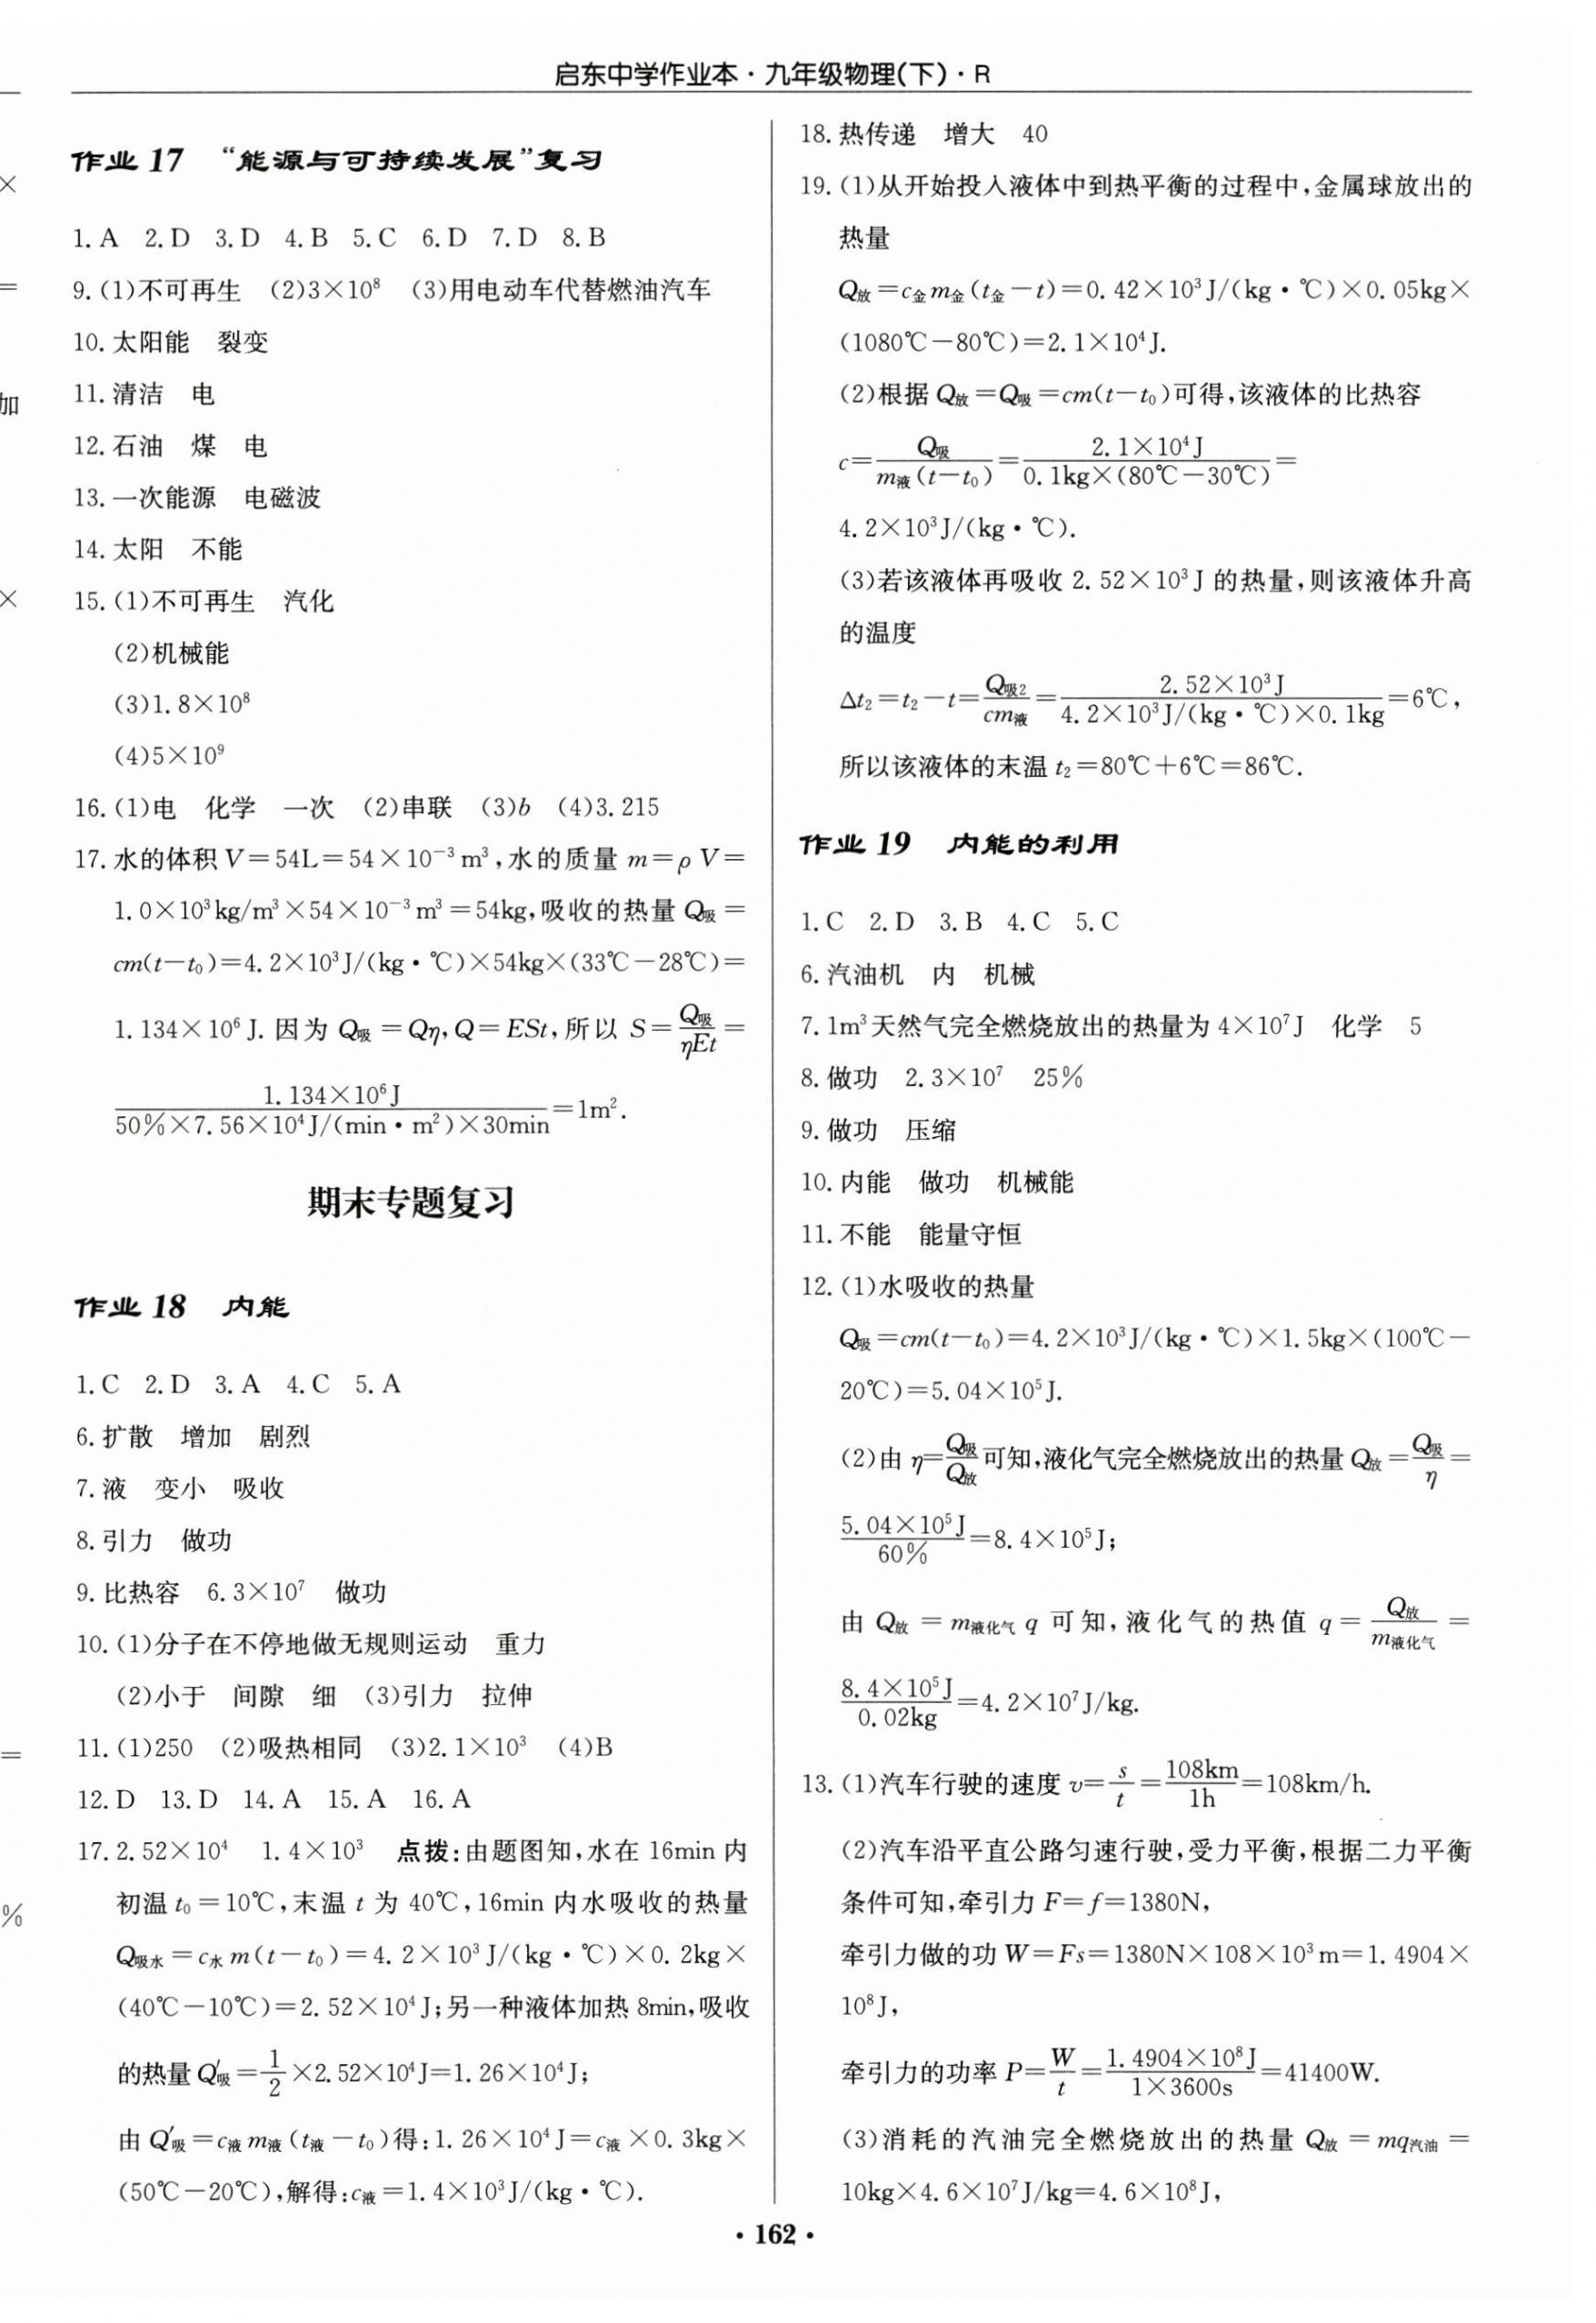 启东中学作业本·九年级物理(下)·R
×
=
加
×
=
%
作业 17 “能源与可持续发展”复习
1.A 2.D 3.D 4.B 5.C 6.D 7.D 8.B
9.(1)不可再生 (2)3×10⁸ (3)用电动车代替燃油汽车
10.太阳能 裂变
11.清洁 电
12.石油 煤 电
13.一次能源 电磁波
14.太阳 不能
15.(1)不可再生 汽化
(2)机械能
(3)1.8×10⁸
(4)5×10⁹
16.(1)电 化学 一次 (2)串联 (3)b (4)3.215
17.水的体积 V=54L=54×10⁻³m³,水的质量 m=ρV=
1.0×10³kg/m³×54×10⁻³m³=54kg,吸收的热量 Q吸=
cm(t-t₀)=4.2×10³J/(kg·℃)×54kg×(33℃-28℃)=
1.134×10⁶J.因为 Q吸=Qη,Q=ESt,所以 S=Q吸/ηEt=
1.134×10⁶J/50%×7.56×10⁴J/(min·m²)×30min=1m².
期末专题复习
作业 18 内能
1.C 2.D 3.A 4.C 5.A
6.扩散 增加 剧烈
7.液 变小 吸收
8.引力 做功
9.比热容 6.3×10⁷ 做功
10.(1)分子在不停地做无规则运动 重力
(2)小于 间隙 细 (3)引力 拉伸
11.(1)250 (2)吸热相同 (3)2.1×10³ (4)B
12.D 13.D 14.A 15.A 16.A
17.2.52×10⁴ 1.4×10³ 点拨:由题图知,水在 16min 内
初温 t₀=10℃,末温 t 为 40℃,16min 内水吸收的热量
Q吸水=c水m(t-t₀)=4.2×10³J/(kg·℃)×0.2kg×
(40℃-10℃)=2.52×10⁴J;另一种液体加热 8min,吸收
的热量 Q′吸=1/2×2.52×10⁴J=1.26×10⁴J;
由 Q′吸=c液m液(t液-t₀)得:1.26×10⁴J=c液×0.3kg×
(50℃-20℃),解得:c液=1.4×10³J/(kg·℃).
18.热传递 增大 40
19.(1)从开始投入液体中到热平衡的过程中,金属球放出的
热量
Q放=c金m金(t金-t)=0.42×10³J/(kg·℃)×0.05kg×
(1080℃-80℃)=2.1×10⁴J.
(2)根据 Q放=Q吸=cm(t-t₀)可得,该液体的比热容
c=Q吸/m液(t-t₀)=2.1×10⁴J/0.1kg×(80℃-30℃)=
4.2×10³J/(kg·℃).
(3)若该液体再吸收 2.52×10³J 的热量,则该液体升高
的温度
Δt₂=t₂-t=Q吸2/cm液=2.52×10³J/4.2×10³J/(kg·℃)×0.1kg=6℃,
所以该液体的末温 t₂=80℃+6℃=86℃.
作业 19 内能的利用
1.C 2.D 3.B 4.C 5.C
6.汽油机 内 机械
7.1m³天然气完全燃烧放出的热量为 4×10⁷J 化学 5
8.做功 2.3×10⁷ 25%
9.做功 压缩
10.内能 做功 机械能
11.不能 能量守恒
12.(1)水吸收的热量
Q吸=cm(t-t₀)=4.2×10³J/(kg·℃)×1.5kg×(100℃-
20℃)=5.04×10⁵J.
(2)由 η=Q吸/Q放可知,液化气完全燃烧放出的热量 Q放=Q吸/η=
5.04×10⁵J/60%=8.4×10⁵J;
由 Q放=m液化气q 可知,液化气的热值 q=Q放/m液化气=
8.4×10⁵J/0.02kg=4.2×10⁷J/kg.
13.(1)汽车行驶的速度 v=s/t=108km/1h=108km/h.
(2)汽车沿平直公路匀速行驶,受力平衡,根据二力平衡
条件可知,牵引力 F=f=1380N,
牵引力做的功 W=Fs=1380N×108×10³m=1.4904×
10⁸J,
牵引力的功率 P=W/t=1.4904×10⁸J/1×3600s=41400W.
(3)消耗的汽油完全燃烧放出的热量 Q放=mq汽油=
10kg×4.6×10⁷J/kg=4.6×10⁸J,
·162·